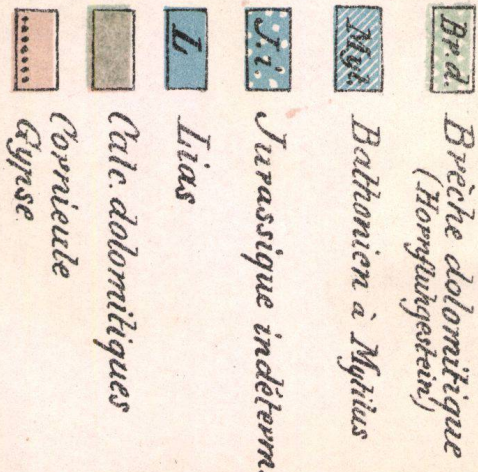 Br.d. Brèche dolomitique
(Hornfluhgestein)
Myt. Bathonien à Mytilus
J.i. Jurassique indéterm.
L Lias
Calc. dolomitiques
Cornieule
Gypse